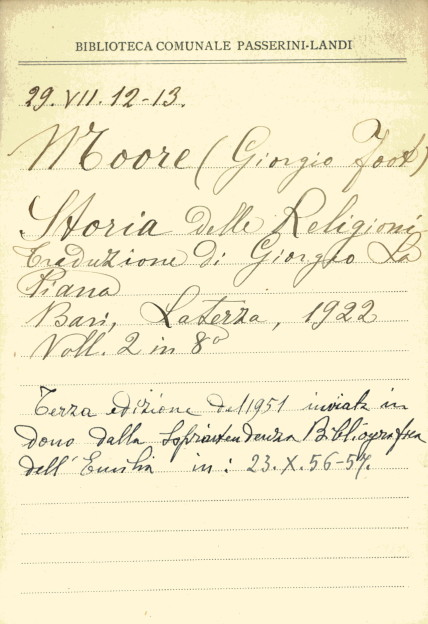 BIBLIOTECA COMUNALE PASSERINI-LANDI
29. VII. 12-13.
Moore (Giorgio Foot)
Storia delle Religioni
Traduzione di Giorgio La
Piana
Bari, Laterza, 1922
Voll. 2 in 8°
Terza edizione del 1951 inviata in
dono dalla Soprintendenza Bibliografica
dell'Emilia in: 23.X.56-57.